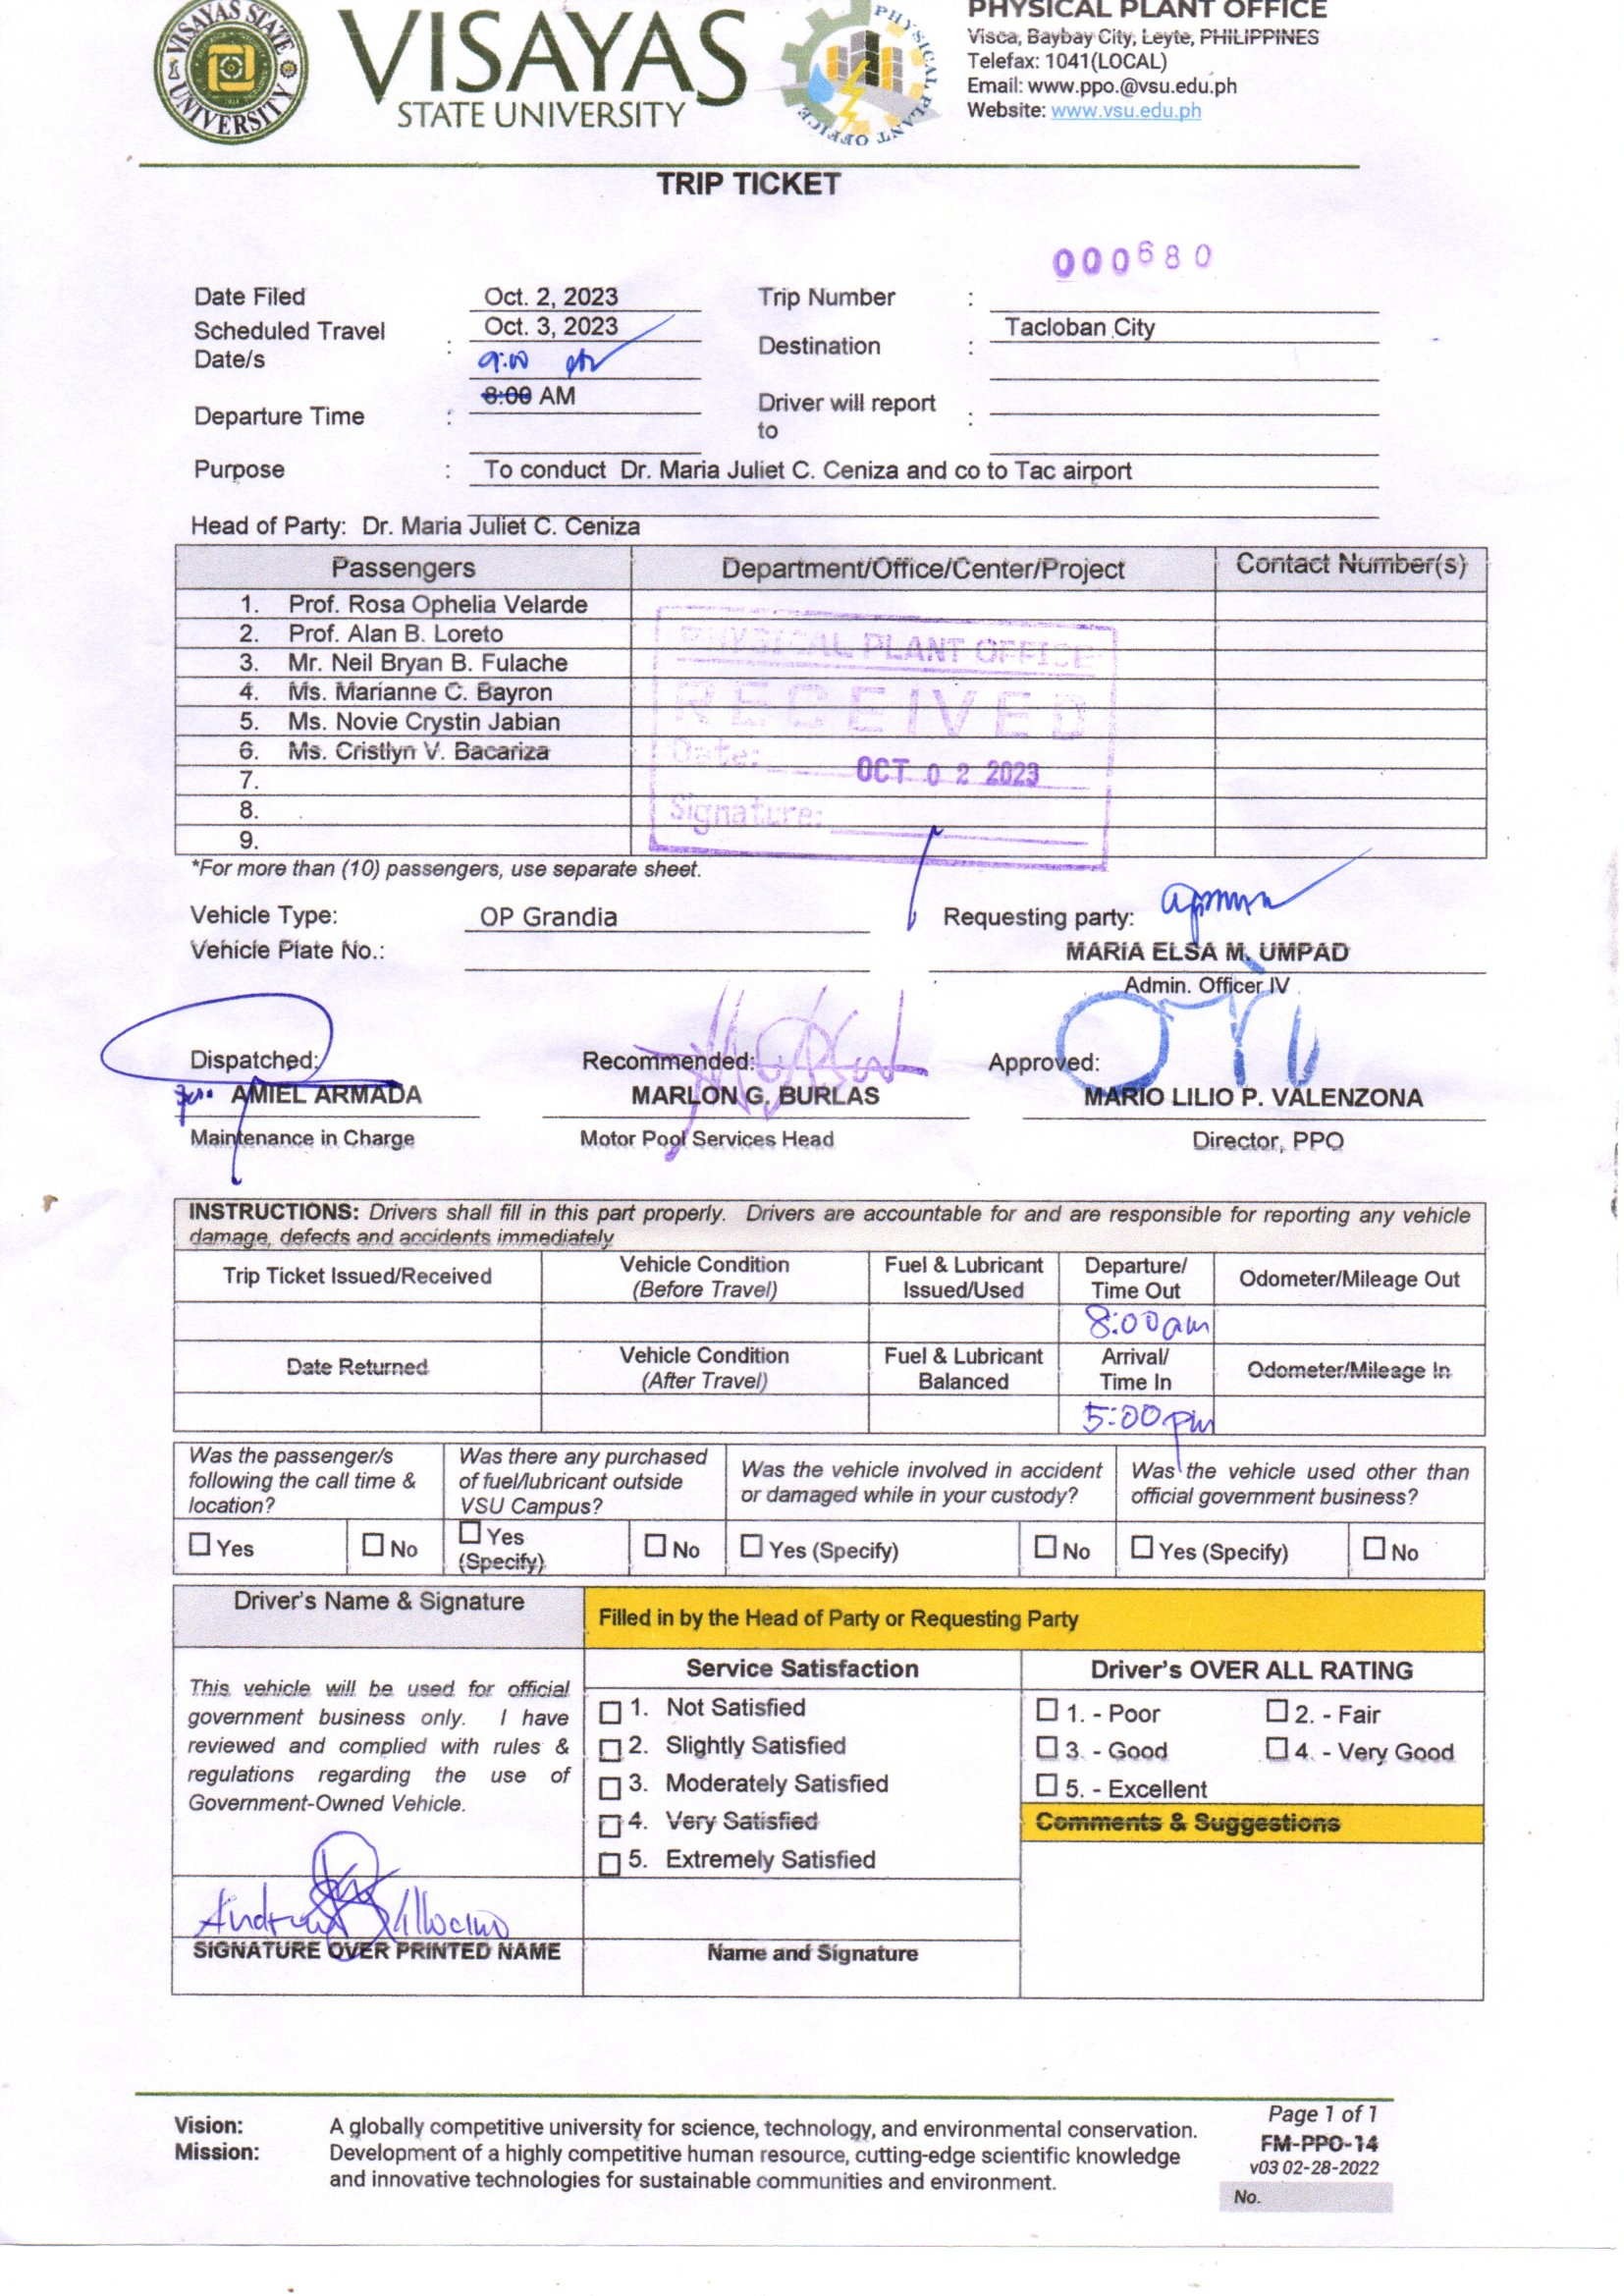 VISAYAS STATE UNIVERSITY
VISAYAS
STATE UNIVERSITY
PHYSICAL PLANT OFFICE
PHYSICAL PLANT OFFICE
Visca, Baybay City, Leyte, PHILIPPINES
Telefax: 1041(LOCAL)
Email: www.ppo.@vsu.edu.ph
Website: www.vsu.edu.ph
TRIP TICKET
000680
Date Filed Oct. 2, 2023 Trip Number :
Scheduled Travel Date/s : Oct. 3, 2023 Destination : Tacloban City
9:00
Departure Time : 8:00 AM Driver will report to :
Purpose : To conduct Dr. Maria Juliet C. Ceniza and co to Tac airport
Head of Party: Dr. Maria Juliet C. Ceniza
Passengers Department/Office/Center/Project Contact Number(s)
1. Prof. Rosa Ophelia Velarde
2. Prof. Alan B. Loreto
3. Mr. Neil Bryan B. Fulache
4. Ms. Marianne C. Bayron
5. Ms. Novie Crystin Jabian
6. Ms. Cristlyn V. Bacariza
7.
8.
9.
PHYSICAL PLANT OFFICE
RECEIVED
Date: OCT 02 2023
Signature:
*For more than (10) passengers, use separate sheet.
Vehicle Type: OP Grandia Requesting party:
Vehicle Plate No.: MARIA ELSA M. UMPAD
Admin. Officer IV
Dispatched: Recommended: Approved:
AMIEL ARMADA MARLON G. BURLAS MARIO LILIO P. VALENZONA
Maintenance in Charge Motor Pool Services Head Director, PPO
INSTRUCTIONS: Drivers shall fill in this part properly. Drivers are accountable for and are responsible for reporting any vehicle
damage, defects and accidents immediately
Trip Ticket Issued/Received Vehicle Condition (Before Travel) Fuel & Lubricant Issued/Used Departure/ Time Out Odometer/Mileage Out
8:00am
Date Returned Vehicle Condition (After Travel) Fuel & Lubricant Balanced Arrival/ Time In Odometer/Mileage In
5:00pm
Was the passenger/s following the call time & location? Was there any purchased of fuel/lubricant outside VSU Campus? Was the vehicle involved in accident or damaged while in your custody? Was the vehicle used other than official government business?
Yes No Yes (Specify) No Yes (Specify) No Yes (Specify) No
Driver's Name & Signature Filled in by the Head of Party or Requesting Party
This vehicle will be used for official
government business only. I have
reviewed and complied with rules &
regulations regarding the use of
Government-Owned Vehicle.
SIGNATURE OVER PRINTED NAME
Service Satisfaction
1. Not Satisfied
2. Slightly Satisfied
3. Moderately Satisfied
4. Very Satisfied
5. Extremely Satisfied
Name and Signature
Driver's OVER ALL RATING
1. - Poor 2. - Fair
3. - Good 4. - Very Good
5. - Excellent
Comments & Suggestions
Vision: A globally competitive university for science, technology, and environmental conservation.
Mission: Development of a highly competitive human resource, cutting-edge scientific knowledge
and innovative technologies for sustainable communities and environment.
Page 1 of 1
FM-PPO-14
v03 02-28-2022
No.